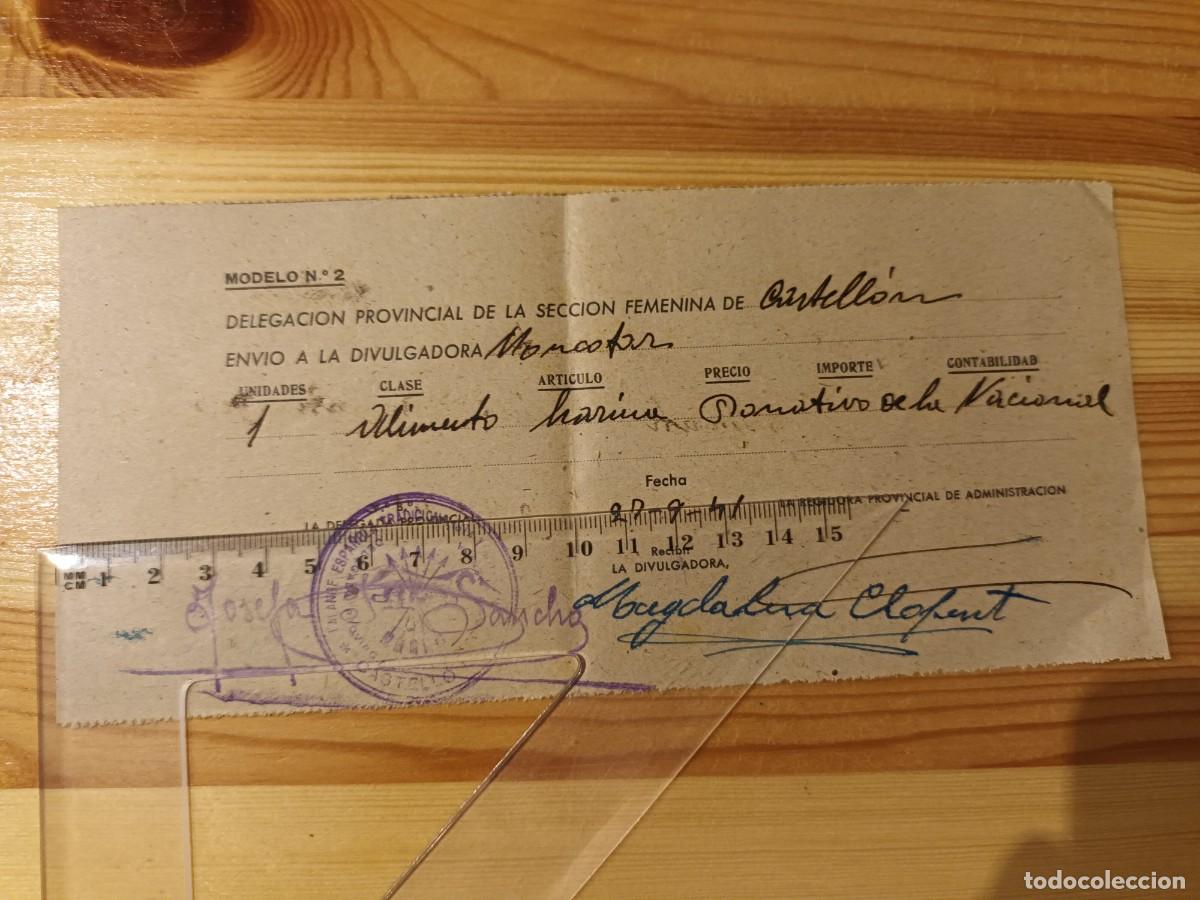 MODELO N.º 2
DELEGACION PROVINCIAL DE LA SECCION FEMENINA DE Castellón
ENVIO A LA DIVULGADORA
UNIDADES CLASE ARTICULO PRECIO IMPORTE CONTABILIDAD
1 Alimento harina Donativo de la Nacional
Fecha
LA DELEGADA PROVINCIAL LA REGIDORA PROVINCIAL DE ADMINISTRACION
MM CM 1 2 3 4 5 6 7 8 9 10 11 12 13 14 15
Recibí:
LA DIVULGADORA,
Josefa Sancho
Magdalena Clofent
FALANGE ESPAÑOLA TRADICIONALISTA
CASTELLÓ
todocoleccion